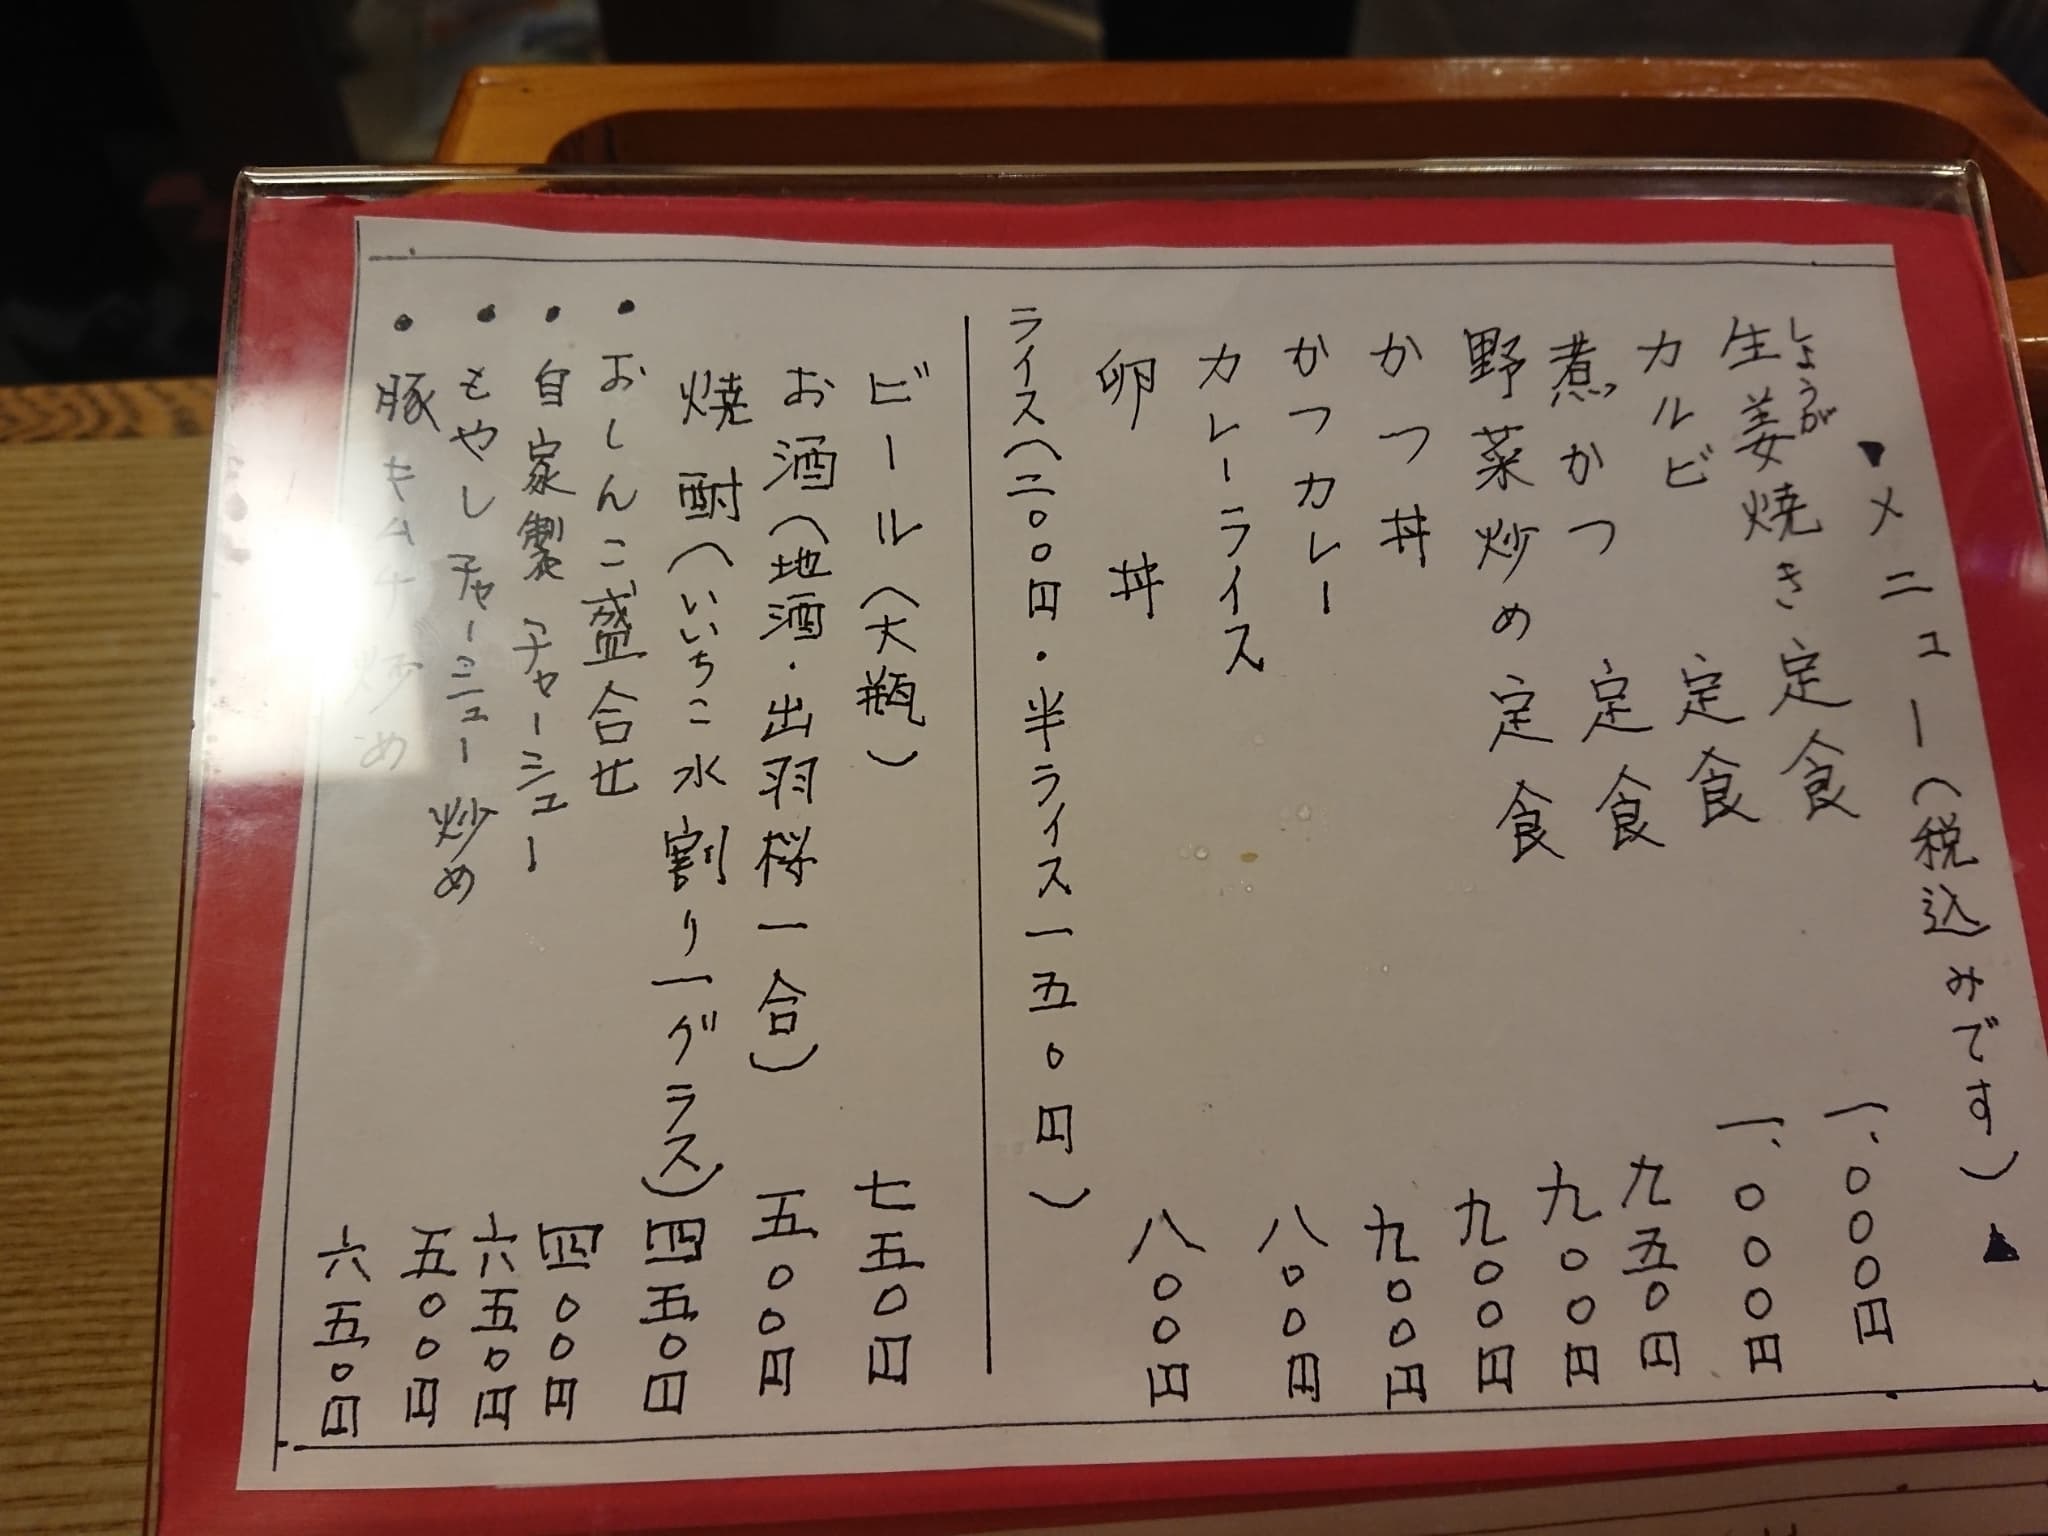 ▲メニュー(税込みです)▲
しょうが
生姜焼き定食 一、〇〇〇円
カルビ定食 一、〇〇〇円
煮かつ定食 九五〇円
野菜炒め定食 九〇〇円
かつ丼 九〇〇円
かつカレー 九〇〇円
カレーライス 八〇〇円
卵丼 八〇〇円
ライス(二〇〇円・半ライス一五〇円)
ビール(大瓶) 七五〇円
お酒(地酒・出羽桜一合) 五〇〇円
焼酎(いいちこ水割り一グラス) 四五〇円
・おしんこ盛合せ 四〇〇円
・自家製チャーシュー 六五〇円
・もやしチャーシュー炒め 五〇〇円
・豚キムチ炒め 六五〇円